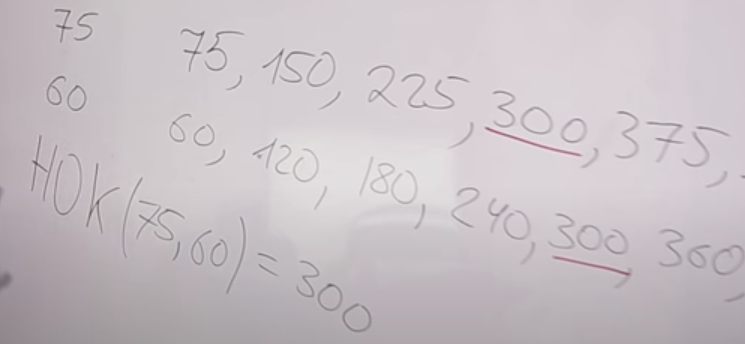 75 75, 150, 225, 300, 375,
60 60, 120, 180, 240, 300, 360,
НОК(75,60) = 300